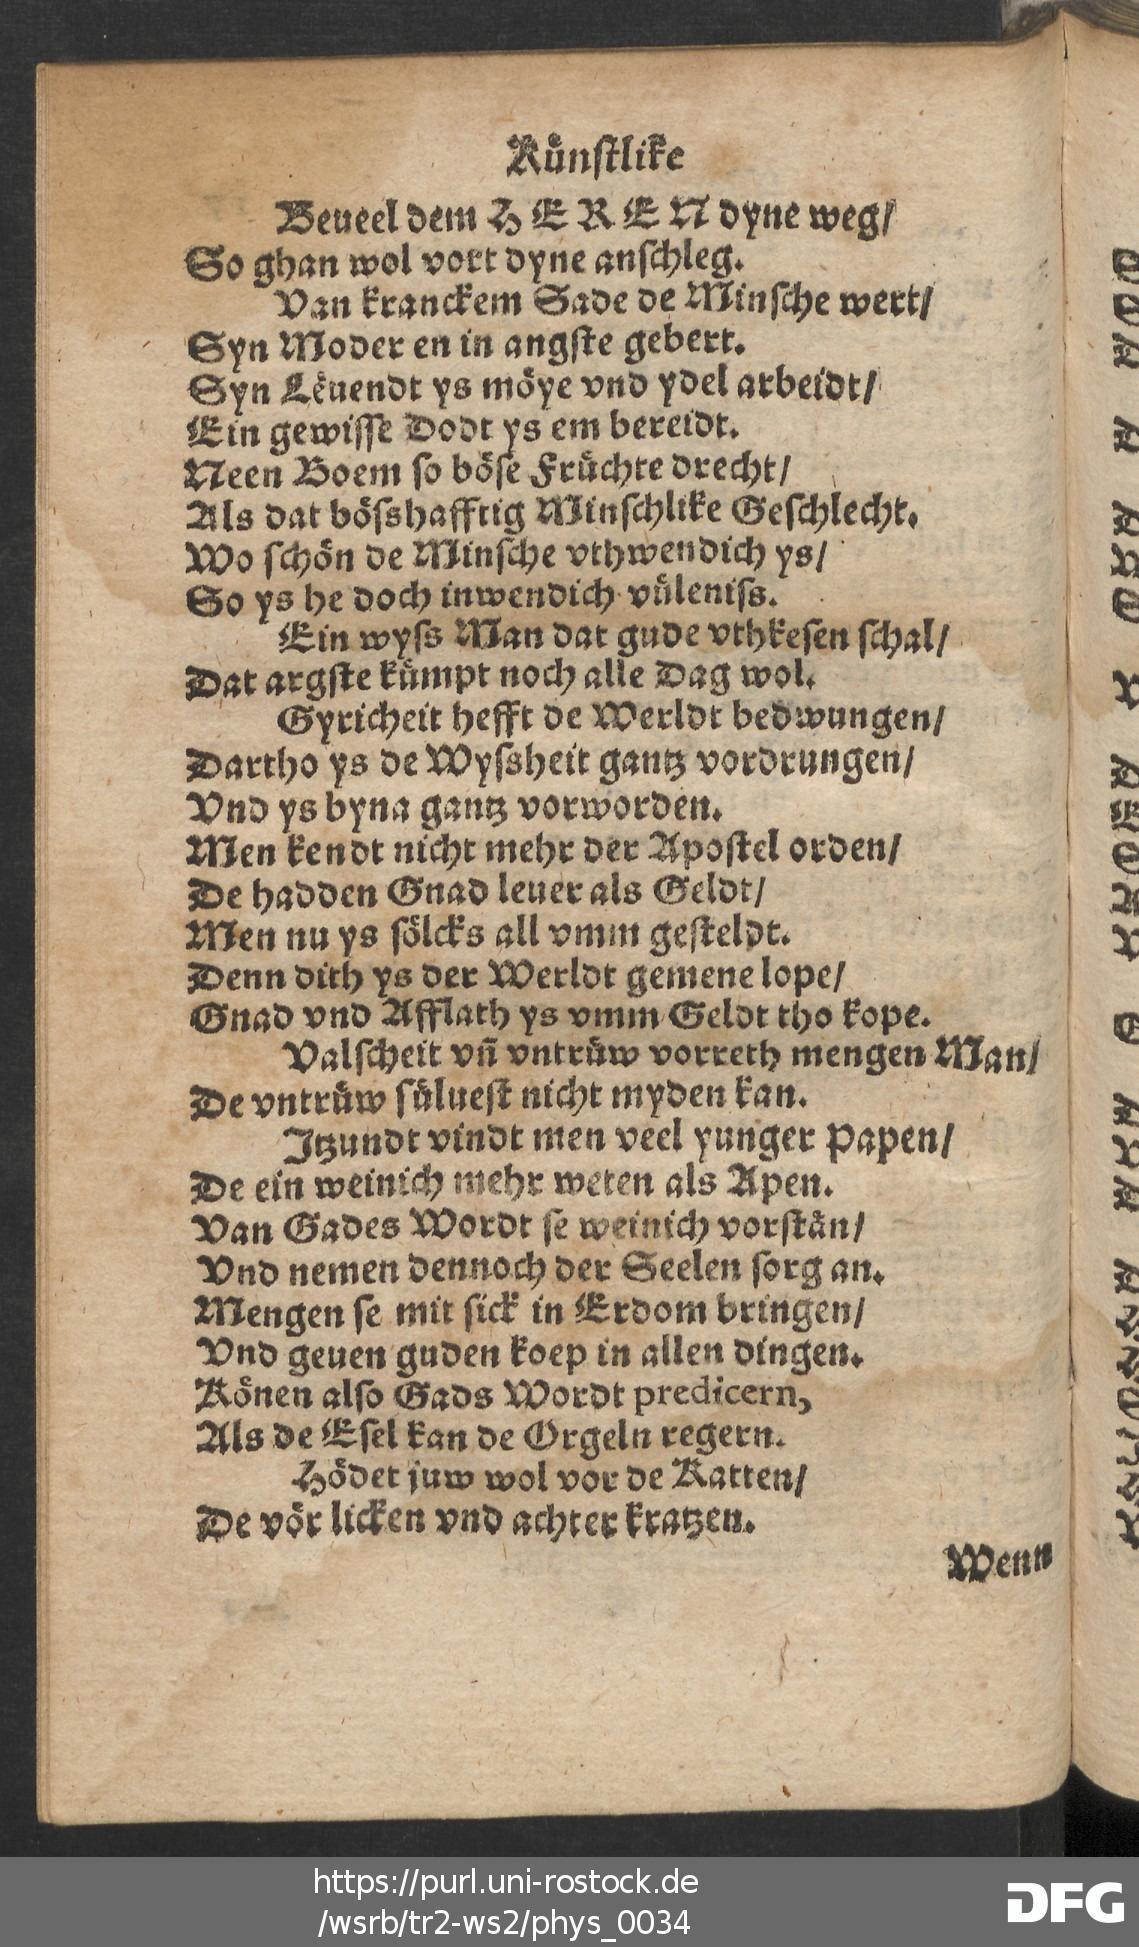 Kuͤnſtlike
Beueel dem HEREN dyne weg/
So ghan wol vort dyne anſchleg.
Van kranckem Sade de Minſche wert/
Syn Moder en in angſte gebert.
Syn Leͤuendt ys moͤye vnd ydel arbeidt/
Ein gewiſſe Dodt ys em bereidt.
Neen Boem ſo boͤſe Fruͤchte drecht/
Als dat boͤſshafftig Minſchlike Geſchlecht.
Wo ſchoͤn de Minſche vthwendich ys/
So ys he doch inwendich vuͤleniſs.
Ein wyſs Man dat gude vthkeſen ſchal/
Dat argſte kuͤmpt noch alle Dag wol.
Gyricheit hefft de Werldt bedwungen/
Dartho ys de Wyſsheit gantz vordrungen/
Vnd ys byna gantz vorworden.
Men kendt nicht mehr der Apoſtel orden/
De hadden Gnad leuer als Geldt/
Men nu ys ſoͤlcks all vmm geſteldt.
Denn dith ys der Werldt gemene lope/
Gnad vnd Afflath ys vmm Geldt tho kope.
Valſcheit vn̄ vntruͤw vorreth mengen Man/
De vntruͤw ſuͤlueſt nicht myden kan.
Itzundt vindt men veel yunger Papen/
De ein weinich mehr weten als Apen.
Van Gades Wordt ſe weinich vorſtaͤn/
Vnd nemen dennoch der Seelen ſorg an.
Mengen ſe mit ſick in Erdom bringen/
Vnd geuen guden koep in allen dingen.
Koͤnen alſo Gads Wordt predicern,
Als de Eſel kan de Orgeln regern.
Hoͤdet juw wol vor de Katten/
De voͤr licken vnd achter kratzen.
Wenn
https://purl.uni-rostock.de
/wsrb/tr2-ws2/phys_0034
DFG